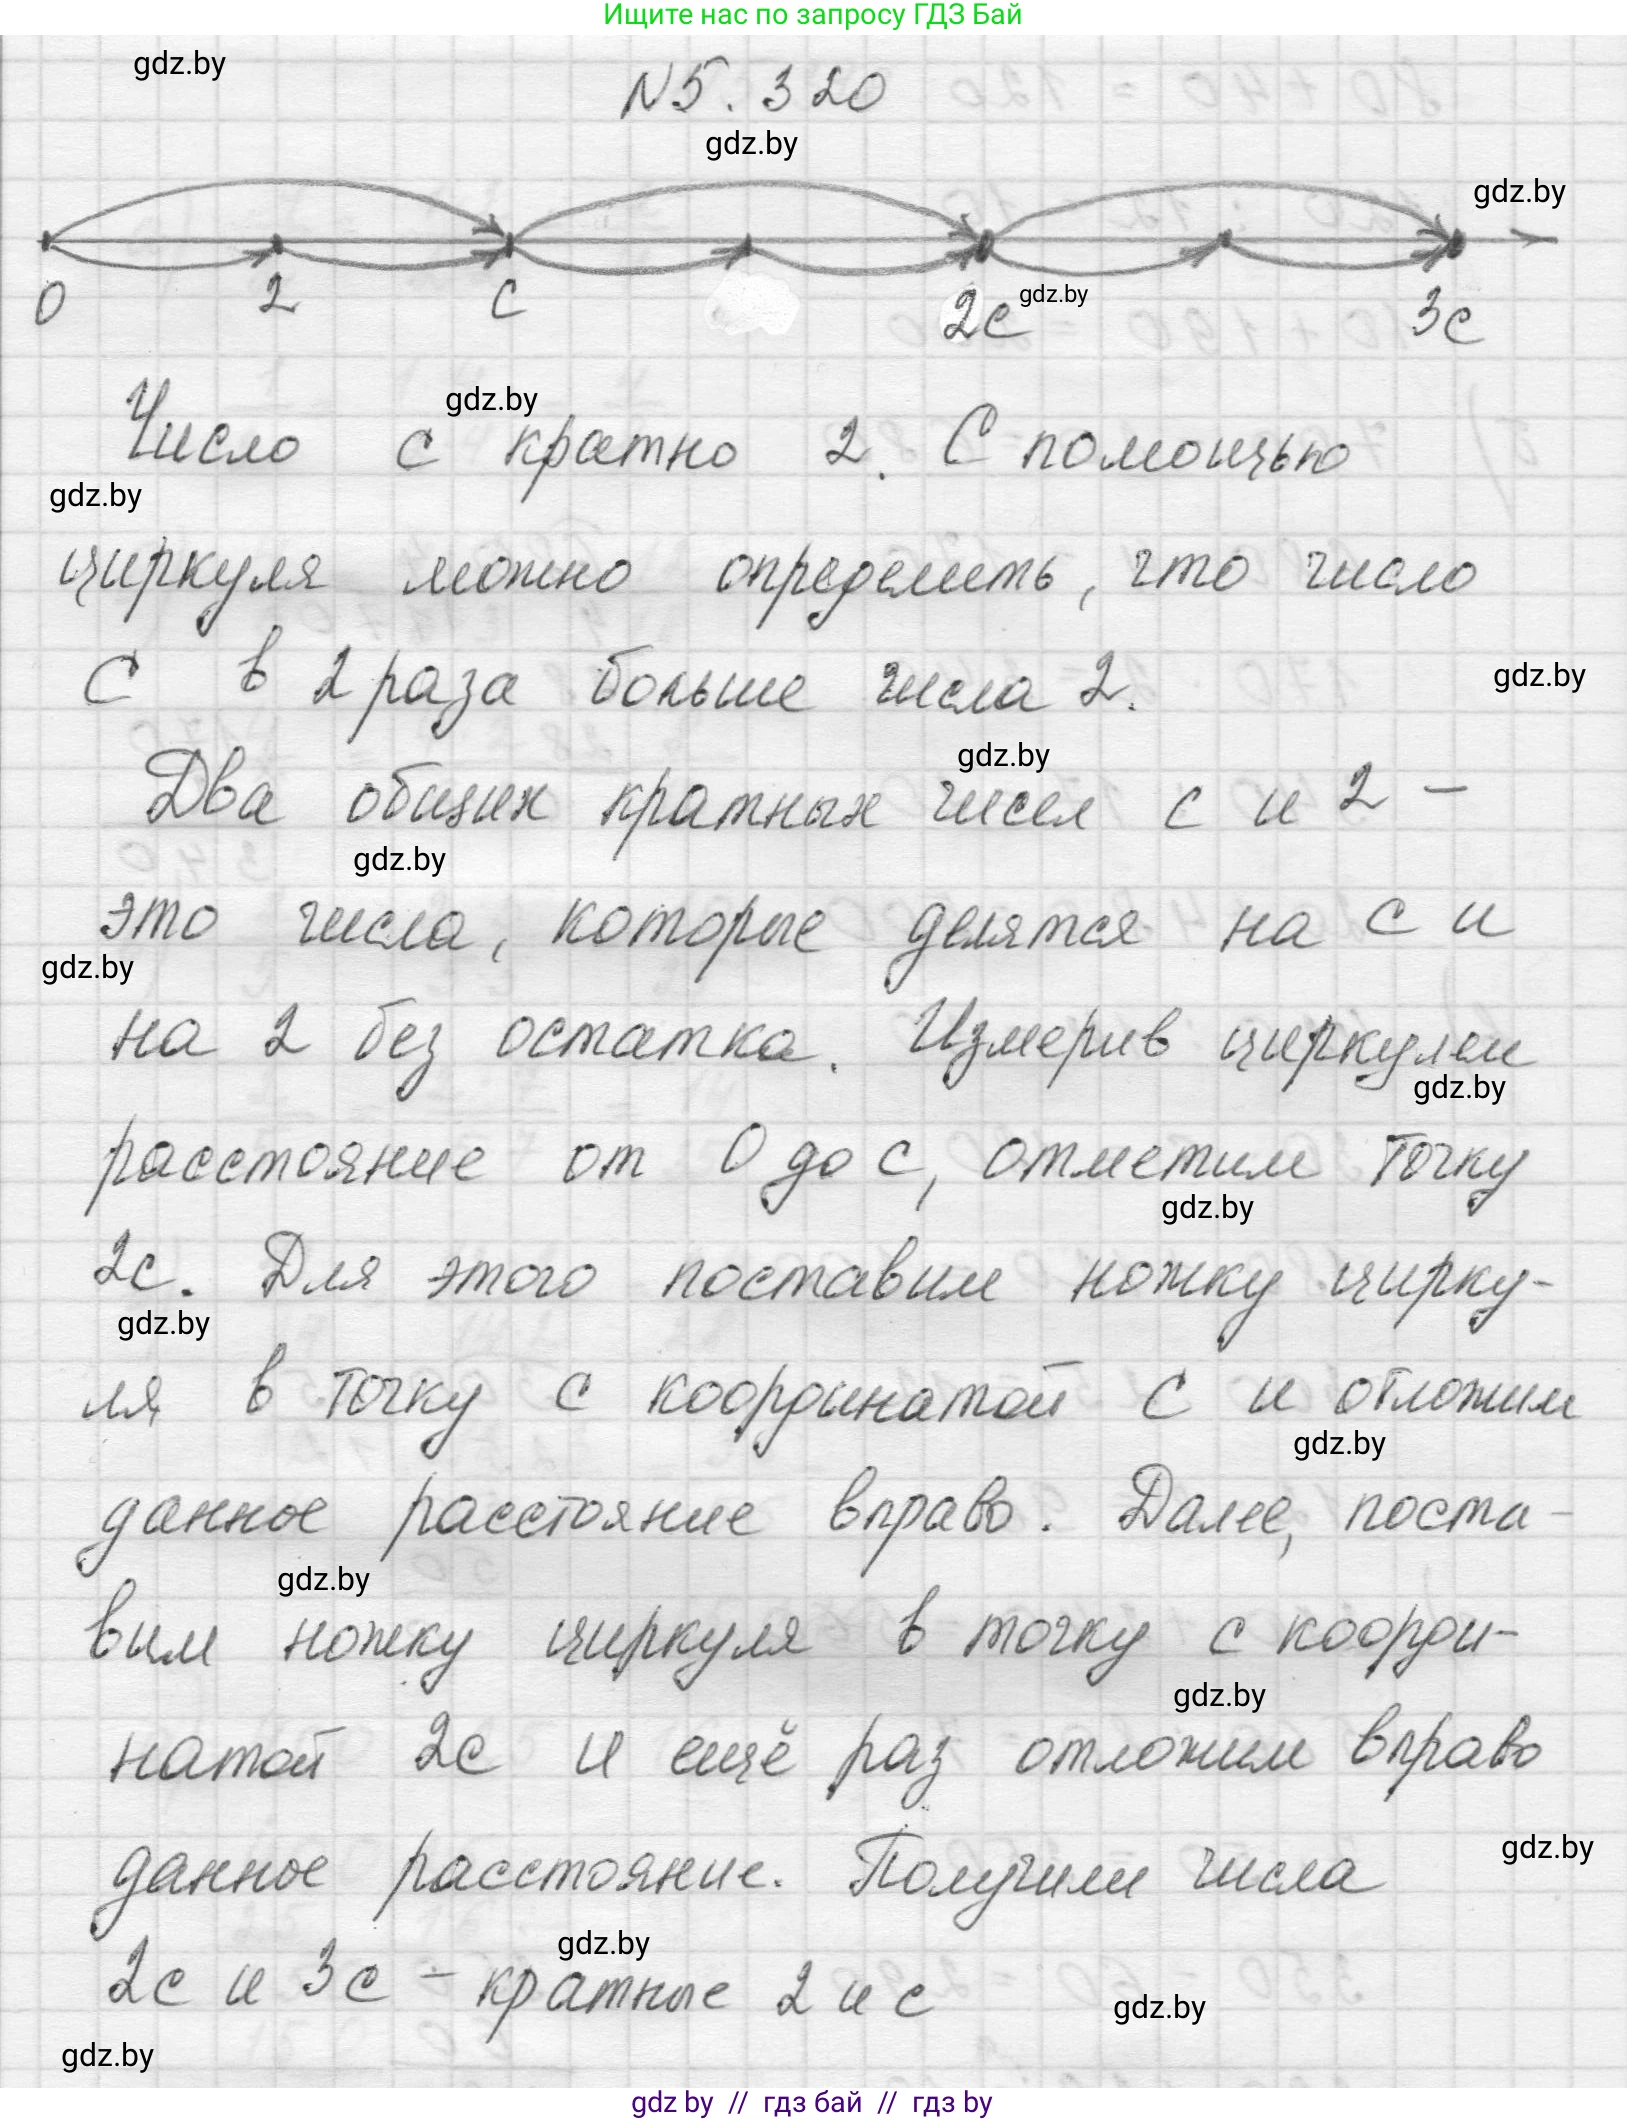 Ищите нас по запросу ГДЗ Бай
gdz.by
N5.320
gdz.by
gdz.by
0 2 c 2c 3c
gdz.by
gdz.by
Число c кратно 2. С помощью
gdz.by
циркуля можно определить, что число
c в 2 раза больше числа 2.
gdz.by
gdz.by
Два общих кратных чисел c и 2 –
gdz.by
это числа, которые делятся на c и
gdz.by
на 2 без остатка. Измерив циркулем
gdz.by
расстояние от 0 до c, отметим точку
gdz.by
2c. Для этого поставим ножку цирку-
gdz.by
ля в точку с координатой c и отложим
gdz.by
данное расстояние вправо. Далее, поста-
gdz.by
вим ножку циркуля в точку с коорди-
gdz.by
натой 2c и ещё раз отложим вправо
gdz.by
данное расстояние. Получили числа
gdz.by
2c и 3c – кратные 2 и c
gdz.by
gdz.by
gdz by // гдз бай // гдз by